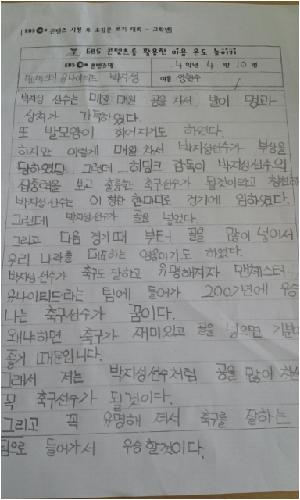 [ EBS 콘텐츠 시청 후 소감문 쓰기 대회 - 고학년 ]
EBS 콘텐츠를 활용한 이용 우도 높이기
EBS 콘텐츠명
4학년 4반 10번
박지성
이름
박지성 선수는 매일 매일 공을 차서 발이 멍과
상처가 가득하였다.
또 발모양이 휘어지기도 하였다.
하지만 이렇게 매일 차서 박지성선수가 부상을
당하였다. 그런데 히딩크 감독이 박지성선수의
보고 훌륭한 축구선수가 될것이라고 칭찬
박지성선수는 이 말 한마디로 경기에 임하였다.
그런데 박지성선수가 골을 넣었다.
그리고 다음 경기 때 부터 골을 많이 넣어서
우리 나라를 대표하는 영웅이기도 하였다.
박지성선수가 축구도 잘하고 유명해지자 맨체스터
유나이티드라는 팀에 들어가 2007년에 우승
나는 축구선수가 꿈이다.
왜냐하면 축구가 재미있고 골을 넣으면 기분이
좋기 때문입니다.
그래서 저는 박지성선수처럼 공을 많이 차서
꼭 축구선수가 될것이다.
그리고 꼭 유명해 져서 축구를 잘하는
팀으로 들어가서 우승할것이다.